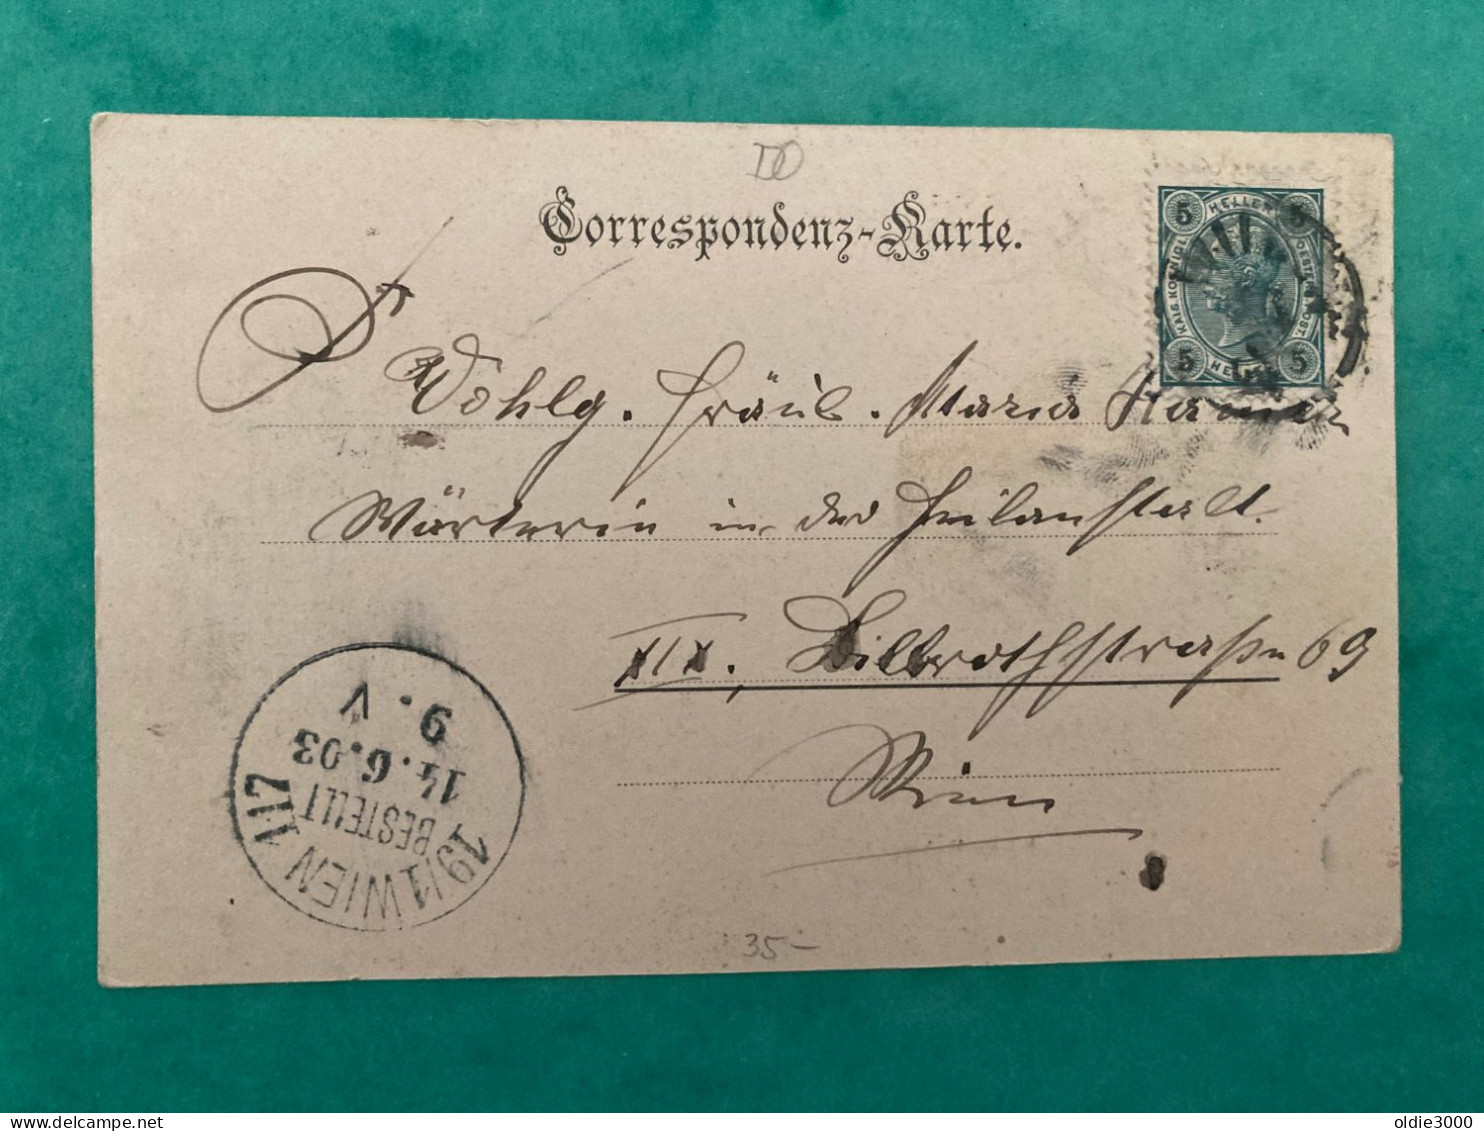 DO
Correspondenz-Karte.
5 HELLER 5
KAIS. KOENIGL. OESTERR. POST.
5 HELLER 5
Wohlg. Fräul. Maria
Wärterin in der Heilanstalt
XIX. Billrothstraße 69
Wien
19/1 WIEN 117
BESTELLT
14.6.03
9.V
35-
oldie3000